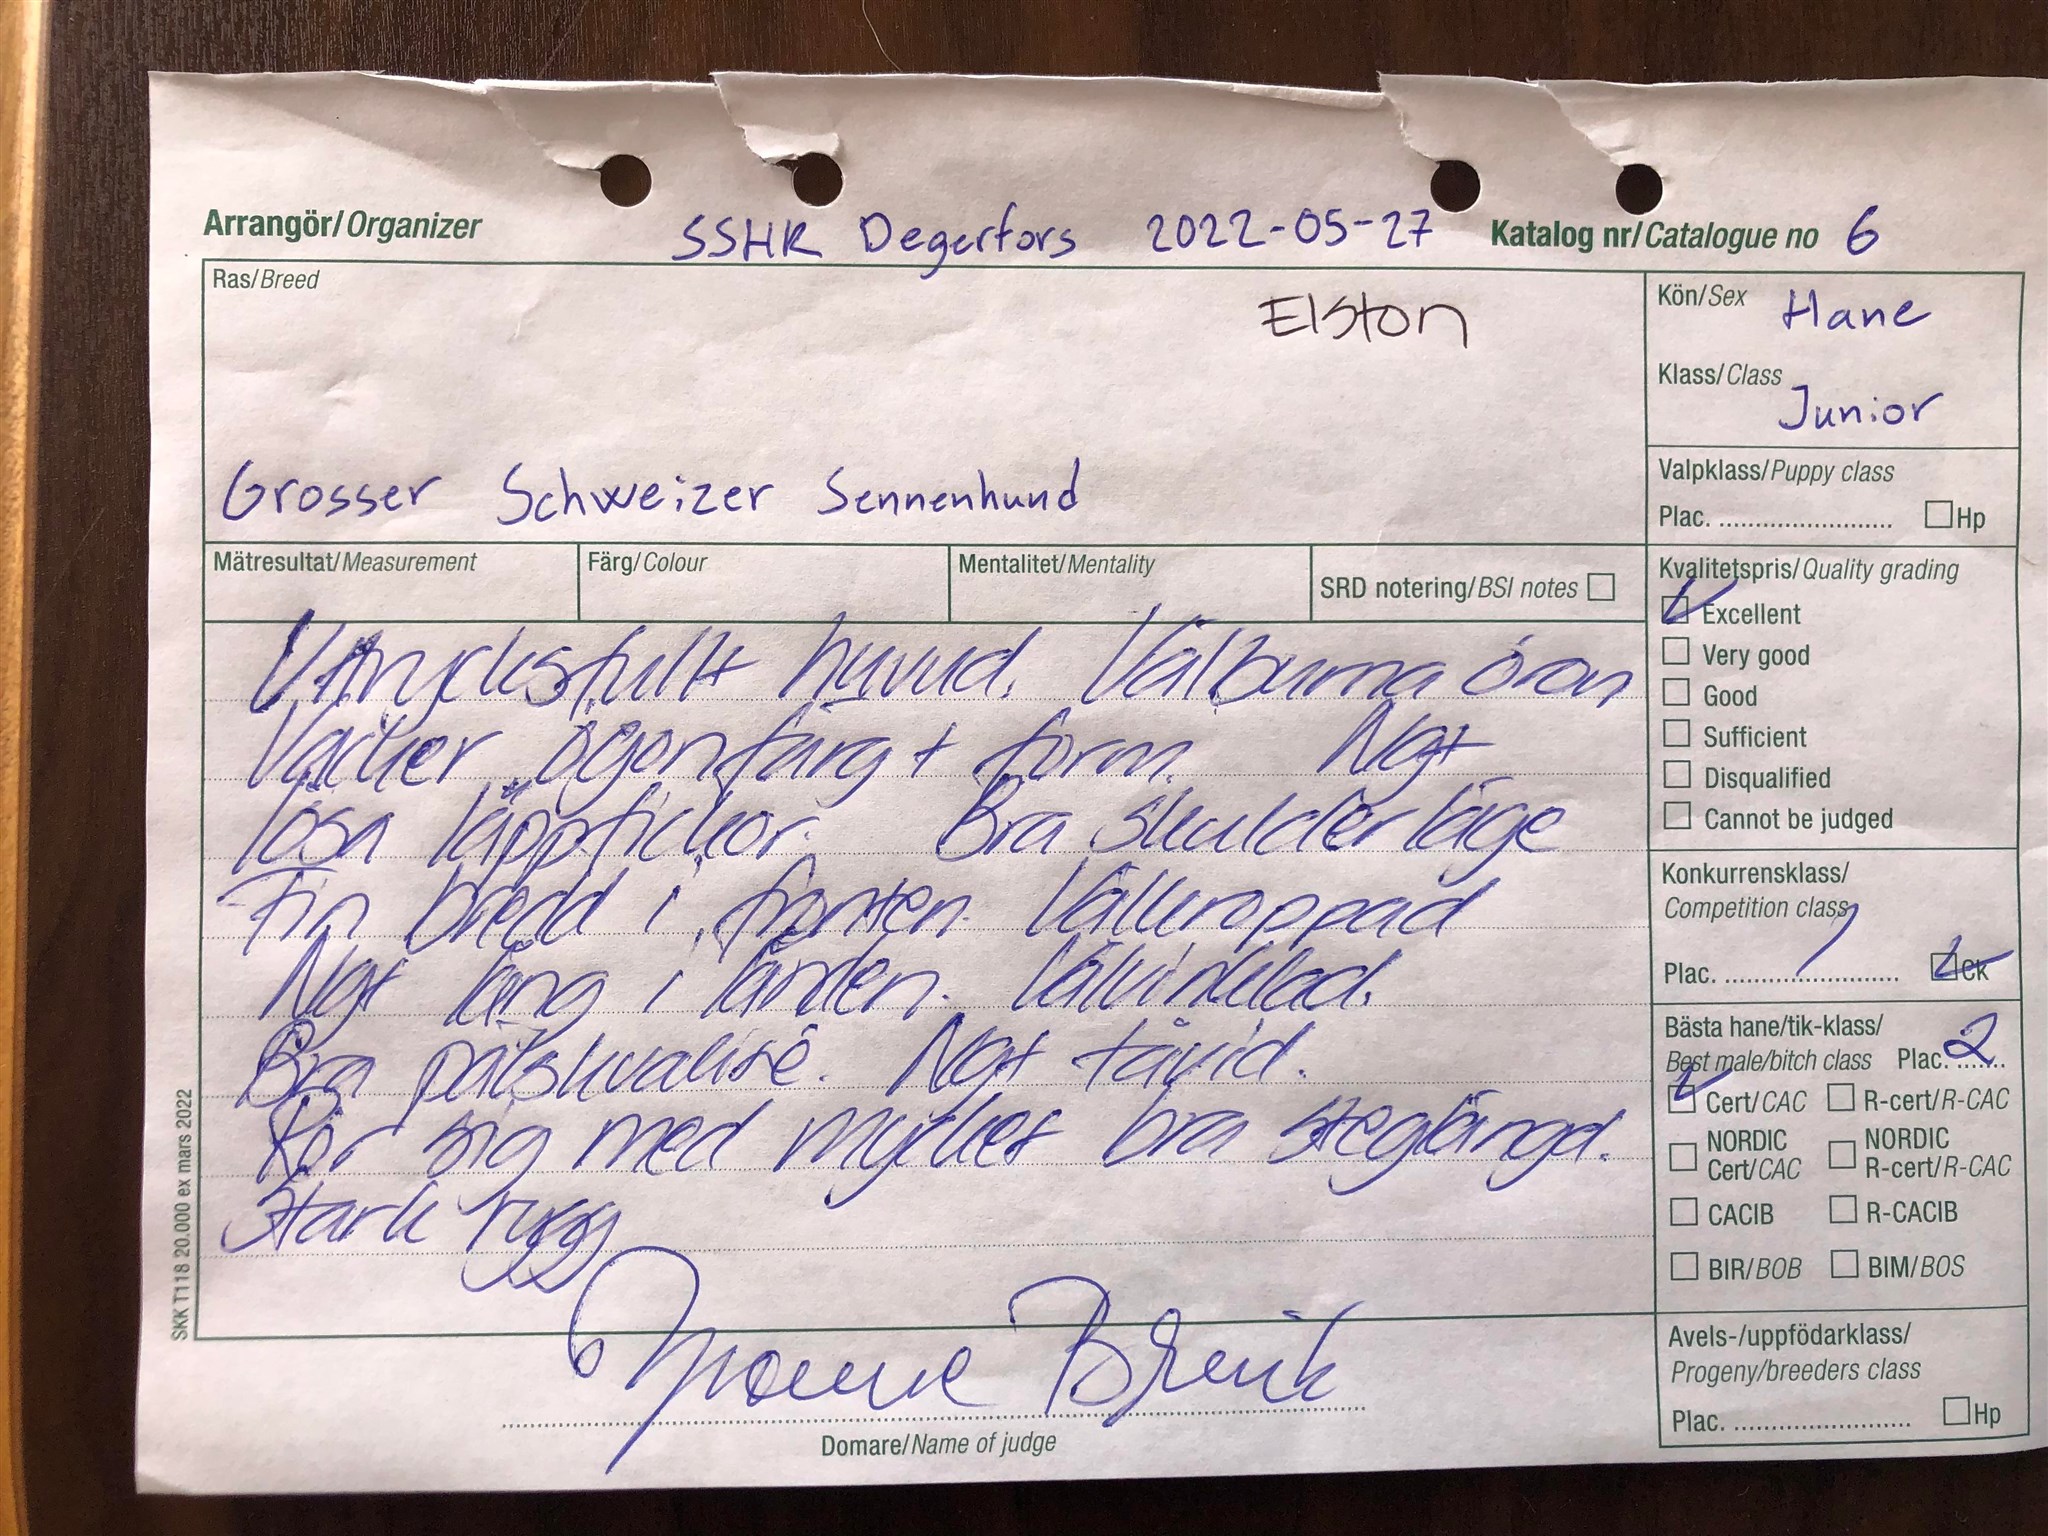 Arrangör/Organizer SSHR Degerfors 2022-05-27 Katalog nr/Catalogue no 6
Ras/Breed
Elston
Grosser Schweizer Sennenhund
Kön/Sex Hane
Klass/Class
Junior
Valpklass/Puppy class
Plac. ........................ Hp
Mätresultat/Measurement Färg/Colour Mentalitet/Mentality SRD notering/BSI notes
Uttrycksfullt huvud. Välburna öron
Vacker ögonfärg + form. Ngt
lösa läppfickor. Bra skulderläge
Fin bredd i fronten. Välkroppad
Ngt lång i länden. Välvinklad.
Bra pälskvalité. Ngt tåvid.
Rör sig med mycket bra steglängd.
Stark rygg
Domare/Name of judge
Kvalitetspris/Quality grading
Excellent
Very good
Good
Sufficient
Disqualified
Cannot be judged
Konkurrensklass/
Competition class
Plac. ........................ Ck
Bästa hane/tik-klass/
Best male/bitch class Plac. 2
Cert/CAC R-cert/R-CAC
NORDIC NORDIC
Cert/CAC R-cert/R-CAC
CACIB R-CACIB
BIR/BOB BIM/BOS
Avels-/uppfödarklass/
Progeny/breeders class
Plac. ........................ Hp
SKK T118 20.000 ex mars 2022